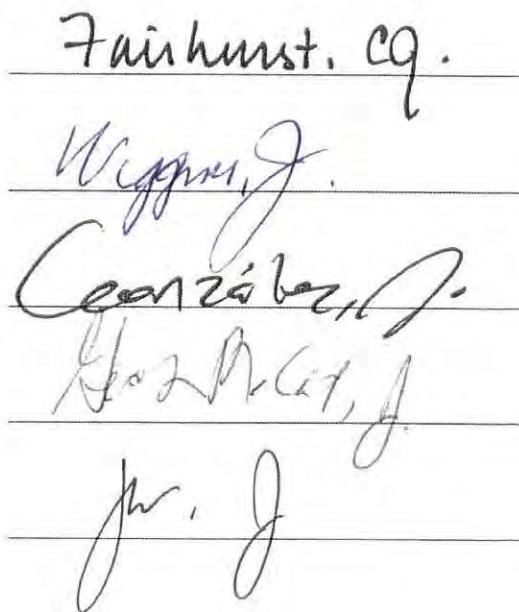 Fairhurst, CJ.
Wiggins, J.
González, J.
Gordon McCloud, J.
Yu, J